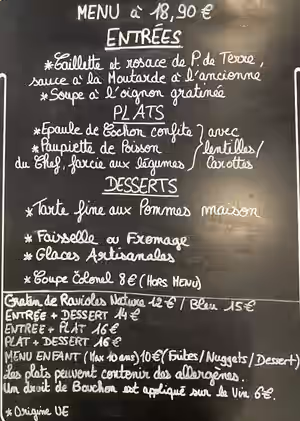 MENU à 18,90 €
ENTRÉES
*Caillette et rosace de P. de Terre,
sauce à la Moutarde à l'ancienne
*Soupe à l'oignon gratinée
PLATS
*Epaule de Cochon confite } avec
*Paupiette de Poisson lentilles/
du Chef, farcie aux légumes Carottes
DESSERTS
*Tarte fine aux Pommes maison
* Faisselle ou Fromage
* Glaces Artisanales
* Coupe Colonel 8€ (HORS MENU)
Gratin de Ravioles Nature 12 € / Bleu 15€
ENTRÉE + DESSERT 14 €
ENTREE + PLAT 16 €
PLAT + DESSERT 16 €
MENU ENFANT (Max 10 ans) 10€ (Frites/Nuggets/Dessert)
Les plats peuvent contenir des allergènes.
Un droit de Bouchon est appliqué sur le Vin 6€.
* Origine UE